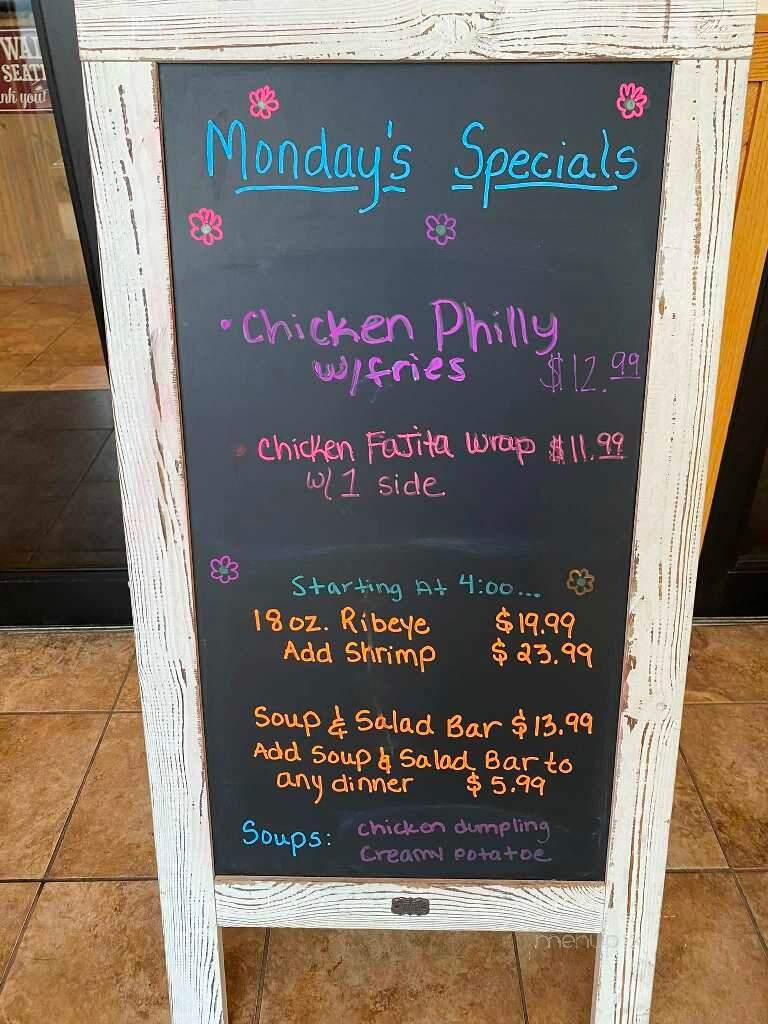 WAI
SEATI
nk you!
Monday's Specials
• Chicken Philly
w/fries $12.99
• Chicken FaJita wrap $11.99
w/ 1 side
Starting At 4:00...
18 oz. Ribeye $19.99
Add Shrimp $23.99
Soup & Salad Bar $13.99
Add Soup & Salad Bar to
any dinner $5.99
Soups: chicken dumpling
Creamy potatoe